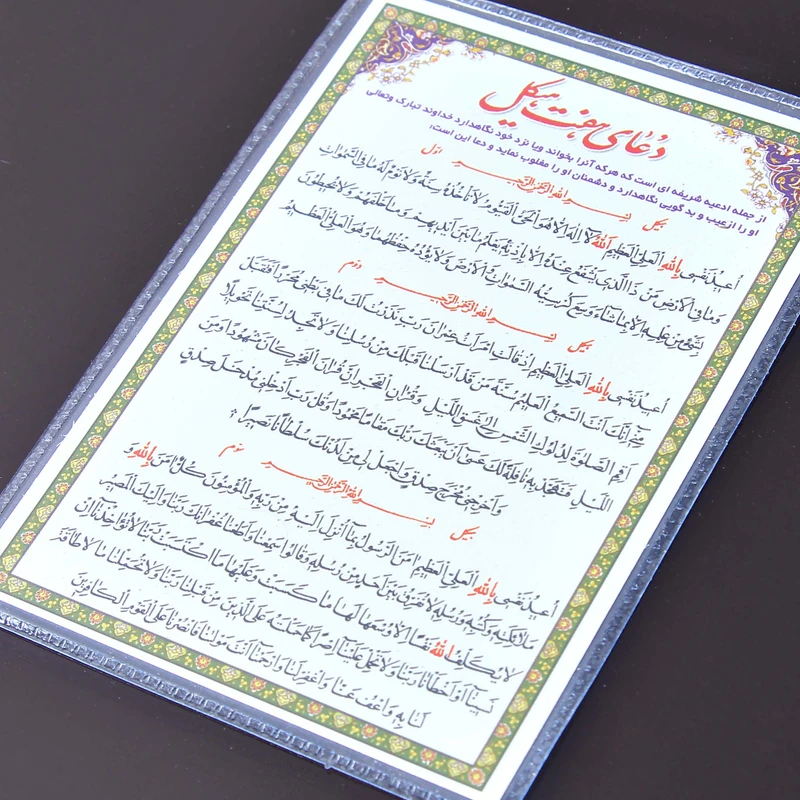 دُعای هفت هیکل
از جمله ادعیه شریفه ای است که هرکه آنرا بخواند ویا نزد خود نگاهدارد خداوند تبارک وتعالی
او را ازعیب و بدگویی نگاهدارد و دشمنان او را مغلوب نماید و دعا این است:
هیکل بسم الله الرحمن الرحیم اول
اعیذ نفسی بالله العلی العظیم الله لا اله الا هو الحی القیوم لا تاخذه سنة ولا نوم له ما فی السموات
وما فی الارض من ذا الذی یشفع عنده الا باذنه یعلم ما بین ایدیهم وما خلفهم ولا یحیطون
بشیء من علمه الا بما شاء وسع کرسیه السموات والارض ولا یؤده حفظهما وهو العلی العظیم
هیکل بسم الله الرحمن الرحیم دوم
اعیذ نفسی بالله العلی العظیم اذ قالت امرات عمران رب انی نذرت لک ما فی بطنی محررا فتقبل
منی انک انت السمیع العلیم سنة من قد ارسلنا قبلک من رسلنا ولا تجد لسنتنا تحویلا
اقم الصلوة لدلوک الشمس الی غسق اللیل وقرءان الفجر ان قرءان الفجر کان مشهودا ومن
اللیل فتهجد به نافلة لک عسی ان یبعثک ربک مقاما محمودا وقل رب ادخلنی مدخل صدق
واخرجنی مخرج صدق واجعل لی من لدنک سلطانا نصیرا
هیکل بسم الله الرحمن الرحیم سوم
اعیذ نفسی بالله العلی العظیم امن الرسول بما انزل الیه من ربه والمؤمنون کل امن بالله و
ملائکته وکتبه ورسله لا نفرق بین احد من رسله وقالوا سمعنا واطعنا غفرانک ربنا والیک المصیر
لا یکلف الله نفسا الا وسعها لها ما کسبت وعلیها ما اکتسبت ربنا لا تؤاخذنا ان
نسینا او اخطانا ربنا ولا تحمل علینا اصرا کما حملته علی الذین من قبلنا ربنا ولا تحملنا ما لا طاقة
لنا به واعف عنا واغفر لنا وارحمنا انت مولانا فانصرنا علی القوم الکافرین